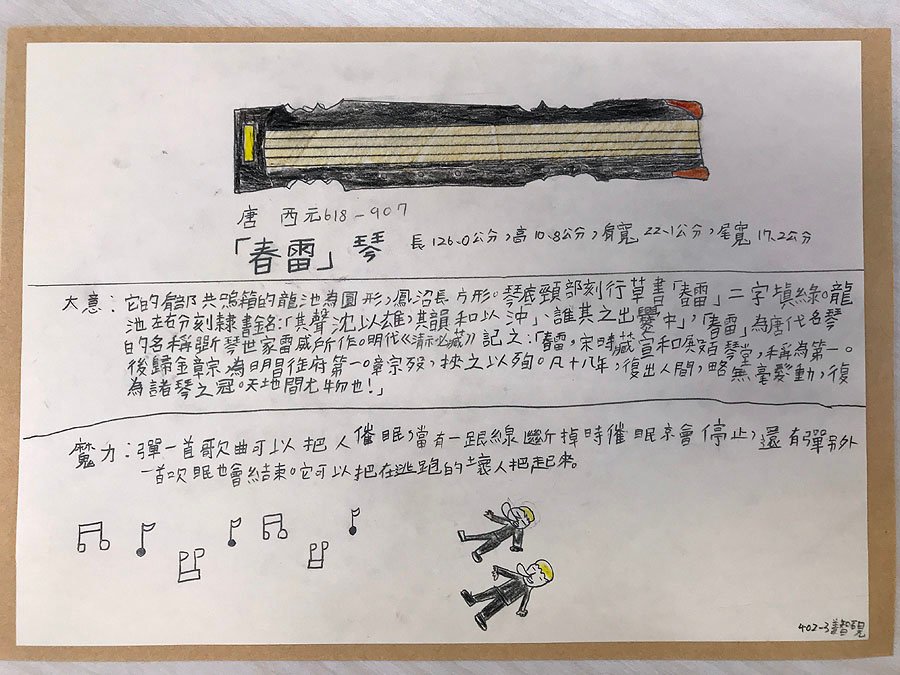 唐 西元618-907
「春雷」琴 長126.0公分,高10.8公分,肩寬22.1公分,尾寬17.2公分
大意:它的肩部共鳴箱的龍池為圓形,鳳沼長方形。琴底頸部刻行草書「春雷」二字填綠。龍
池左右分刻隸書銘:「其聲沈以雄,其韻和以沖」、誰其之出爨中」,「春雷」為唐代名琴
的名稱斲琴世家雷威所作。明代《清祕藏》記之:「春雷,宋時藏宣和 琴堂,稱為第一。
後歸金章宗,為明昌御府第一。章宗歿,挾之以殉。凡十八年,復出人間,略無毫髮動,復
為諸琴之冠。天地間尤物也!」
魔力:彈一首歌曲可以把人催眠,當有一跟線斷掉時催眠京會停止,還有彈另外
一首吹眠也會結束。它可以把在逃跑的壞人把起來。
402-3